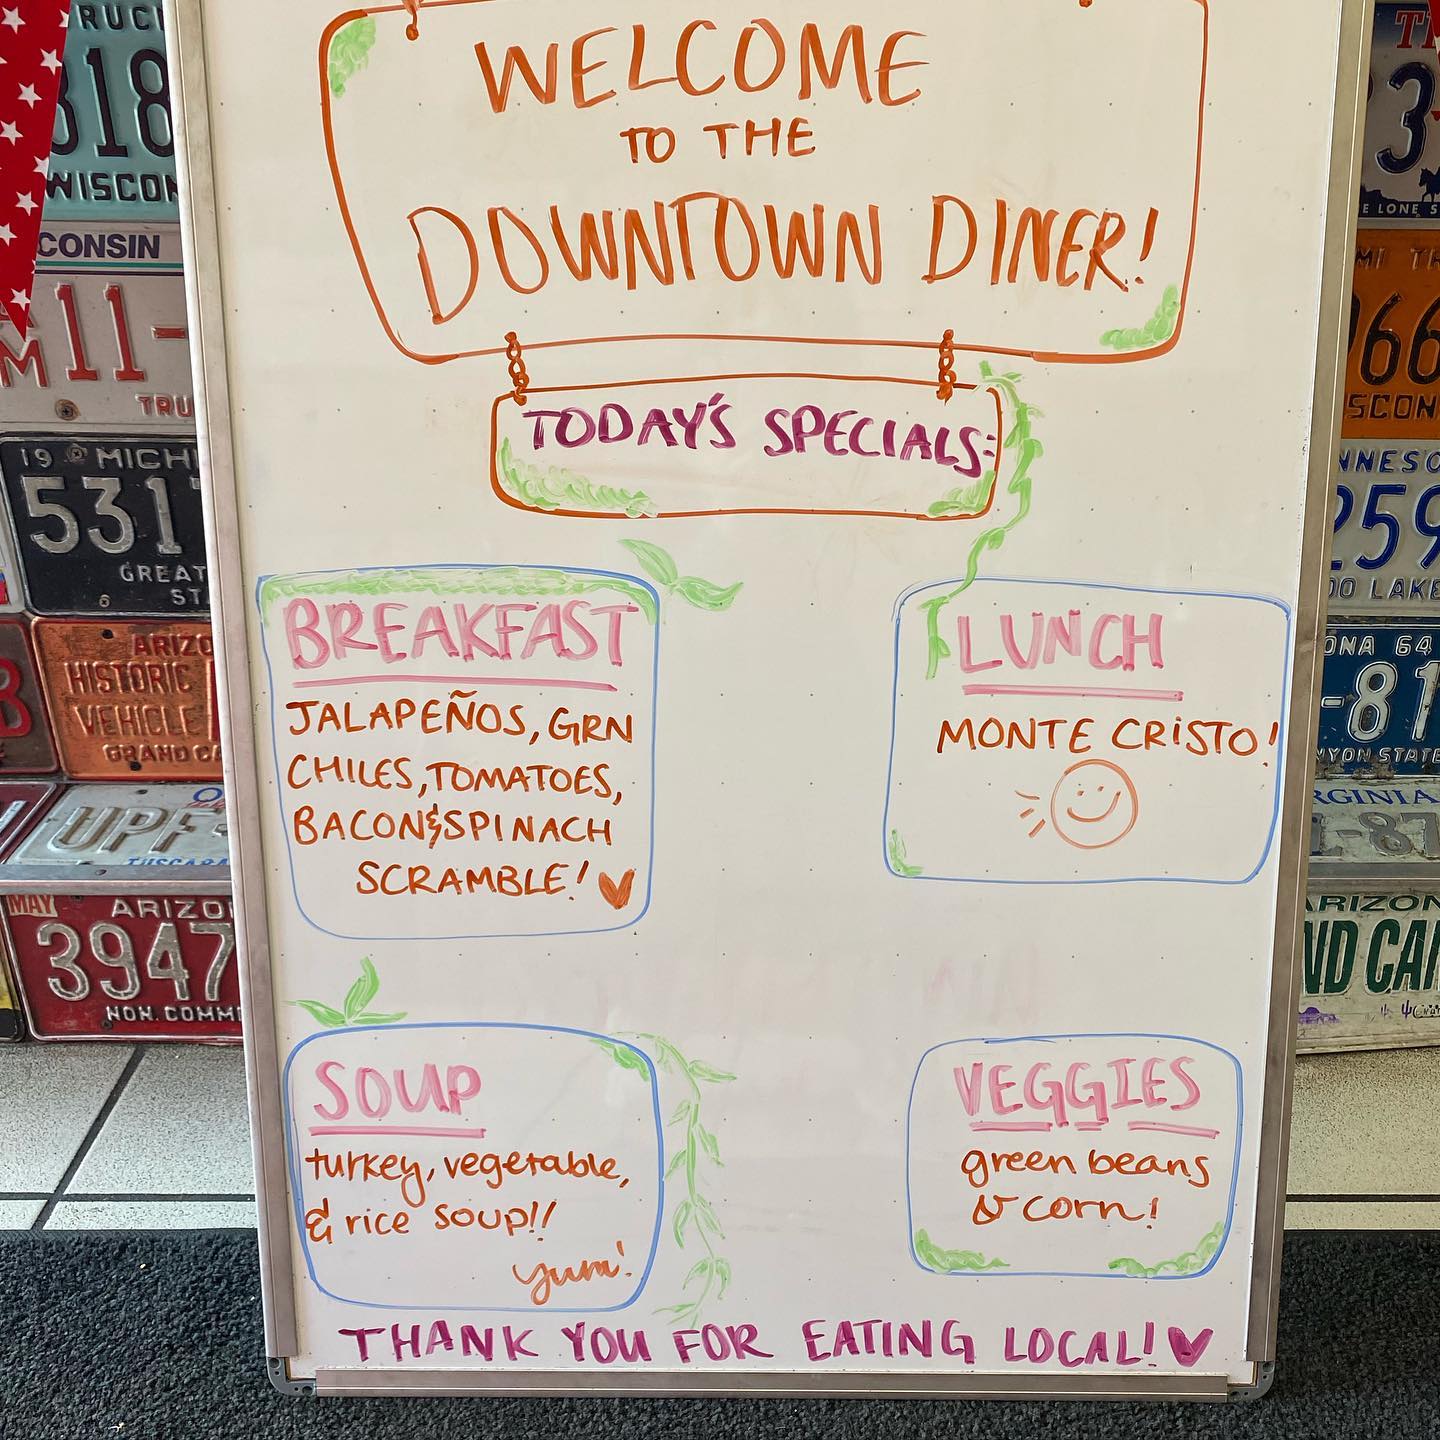 WELCOME
TO THE
DOWNTOWN DINER!
TODAY'S SPECIALS:
BREAKFAST
JALAPEÑOS, GRN
CHILES, TOMATOES,
BACON & SPINACH
SCRAMBLE!
LUNCH
MONTE CRISTO!
SOUP
turkey, vegetable,
& rice soup!!
yum!
VEGGIES
green beans
& corn!
THANK YOU FOR EATING LOCAL!
318
WISCON
CONSIN
11-
TRU
19 MICHI
5317
GREAT
ST
ARIZO
HISTORIC
VEHICLE
GRAND CA
UPF
MAY
ARIZO
3947
NON. COMM
3
E LONE S
966
SCON
NNESO
259
00 LAKE
ONA 64
-81
NYON STATE
RGINIA
-87
ARIZON
ND CAN